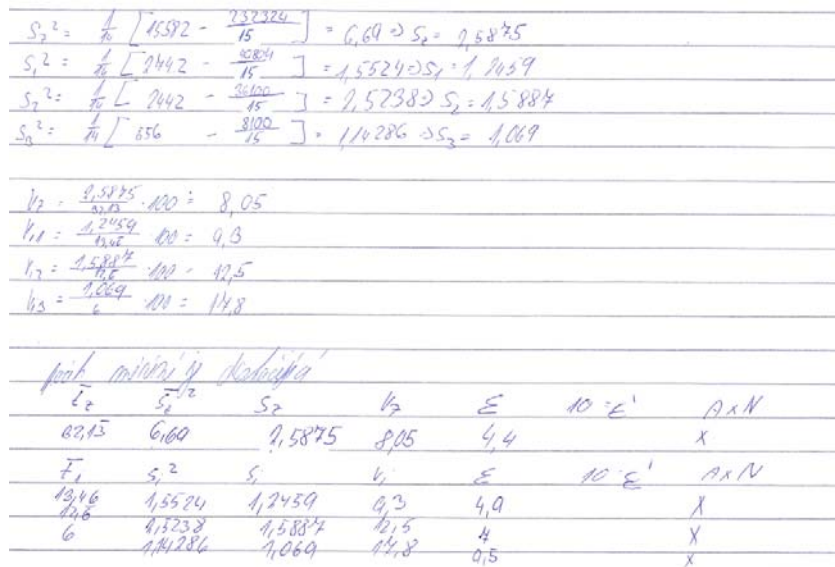 S_z² = 1/14 [ 15582 - 232324/15 ] = 6,69 => S_z = 2,5875
S_1² = 1/14 [ 2742 - 40804/15 ] = 1,5524 => S_1 = 1,2459
S_2² = 1/14 [ 2442 - 36100/15 ] = 2,5238 => S_2 = 1,5887
S_3² = 1/14 [ 556 - 8100/15 ] = 1,14286 => S_3 = 1,069
V_z = 2,5875/32,13 · 100 = 8,05
V_1 = 1,2459/13,46 · 100 = 9,3
V_2 = 1,5887/12,6 · 100 = 12,5
V_3 = 1,069/6 · 100 = 17,8
t̄_z S_z² S_z V_z Ɛ 10 Ɛ' A x N
32,13 6,69 2,5875 8,05 4,4 X
t̄_i S_i² S_i V_i Ɛ 10 Ɛ' A x N
13,46 1,5524 1,2459 9,3 4,9 X
12,6 2,5238 1,5887 12,5 7 X
6 1,14286 1,069 17,8 9,5 X